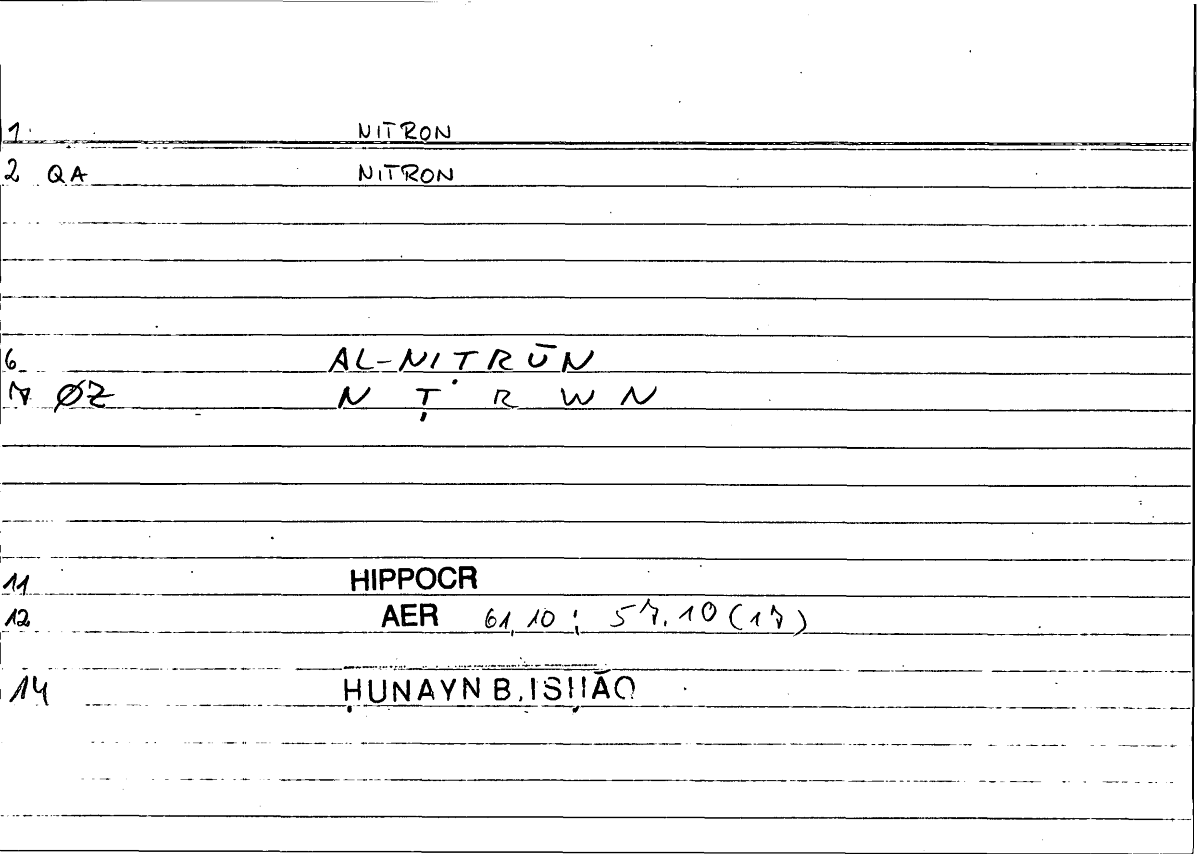 1. NITRON
2 QA NITRON
6 AL-NIṬRŪN
7 ØZ N Ṭ R W N
11 HIPPOCR
12 AER 61,10 ; 57.10 (17)
14 ḤUNAYN B. ISḤĀQ